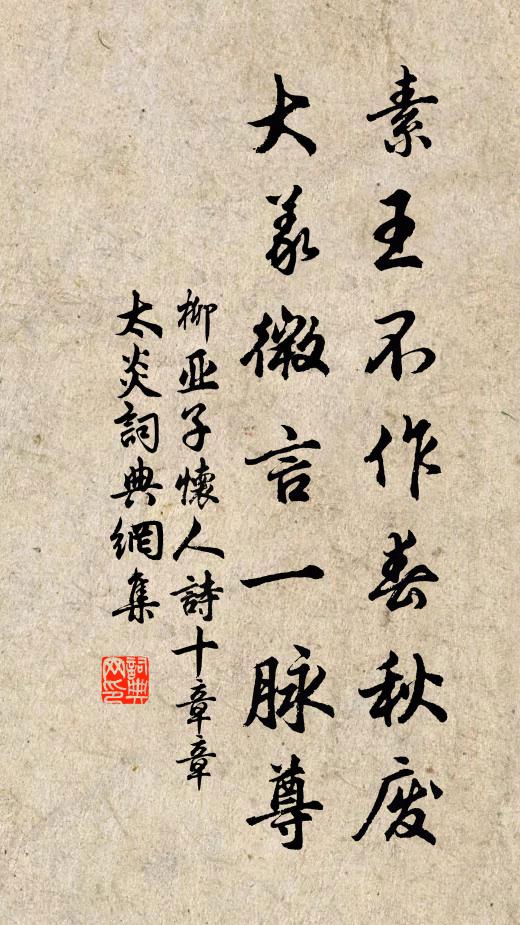 素王不作春秋废
大义微言一脉尊
柳亚子懷人詩十章章
太炎詞典網集
詞典网印